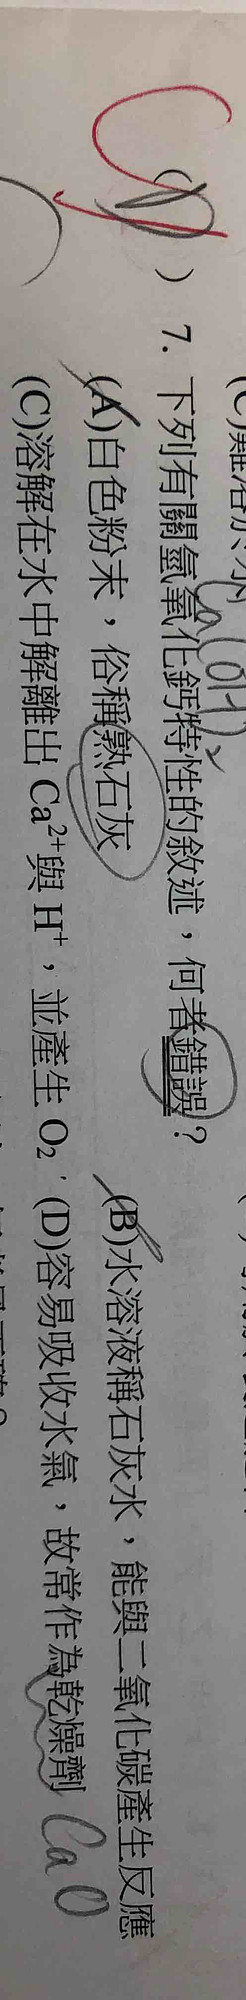 7. 下列有關氫氧化鈣特性的敘述，何者錯誤？
Ca(OH)₂
(A)白色粉末，俗稱熟石灰 (B)水溶液稱石灰水，能與二氧化碳產生反應
(C)溶解在水中解離出 Ca²⁺與 H⁺，並產生 O₂ (D)容易吸收水氣，故常作為乾燥劑 CaO